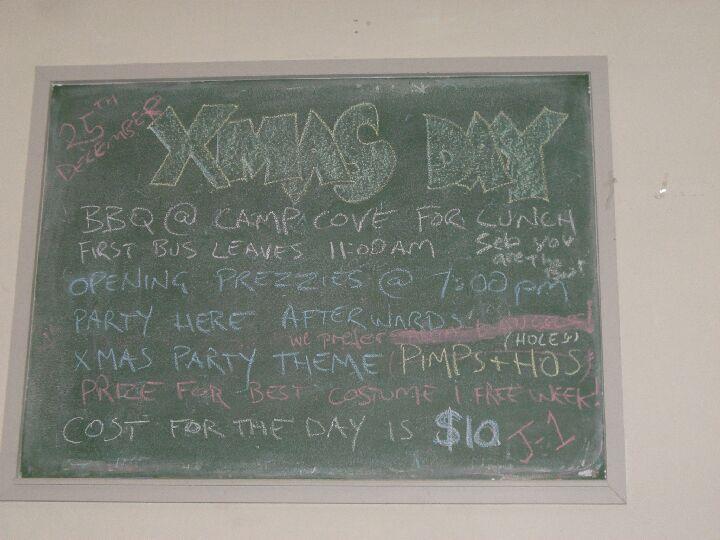 25TH DECEMBER
XMAS DAY
BBQ @ CAMP COVE FOR LUNCH
FIRST BUS LEAVES 11:00AM
Seb you are the Best
OPENING PREZZIES @ 7:00pm
PARTY HERE AFTERWARDS
we prefer
(HOLES)
XMAS PARTY THEME (PIMPS + HOS)
PRIZE FOR BEST COSTUME 1 FREE WEEK!
COST FOR THE DAY IS $10
J-1